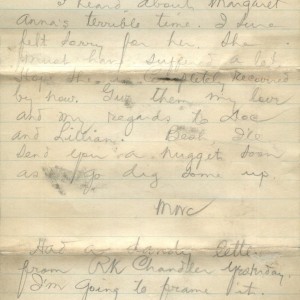 I heard about Margaret
Anna's terrible time. I sure
felt sorry for her. She
must have suffered a lot.
Hope she is completely recovered
by now. Give them my love
and my regards to Joe
and Lillian. I'll
send you a nugget soon
as I go dig some up.
MWC
Had a dandy letter
from RK Chandler yesterday.
I'm going to frame it.